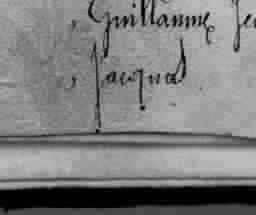 , Guillaume Je
, Jacqua